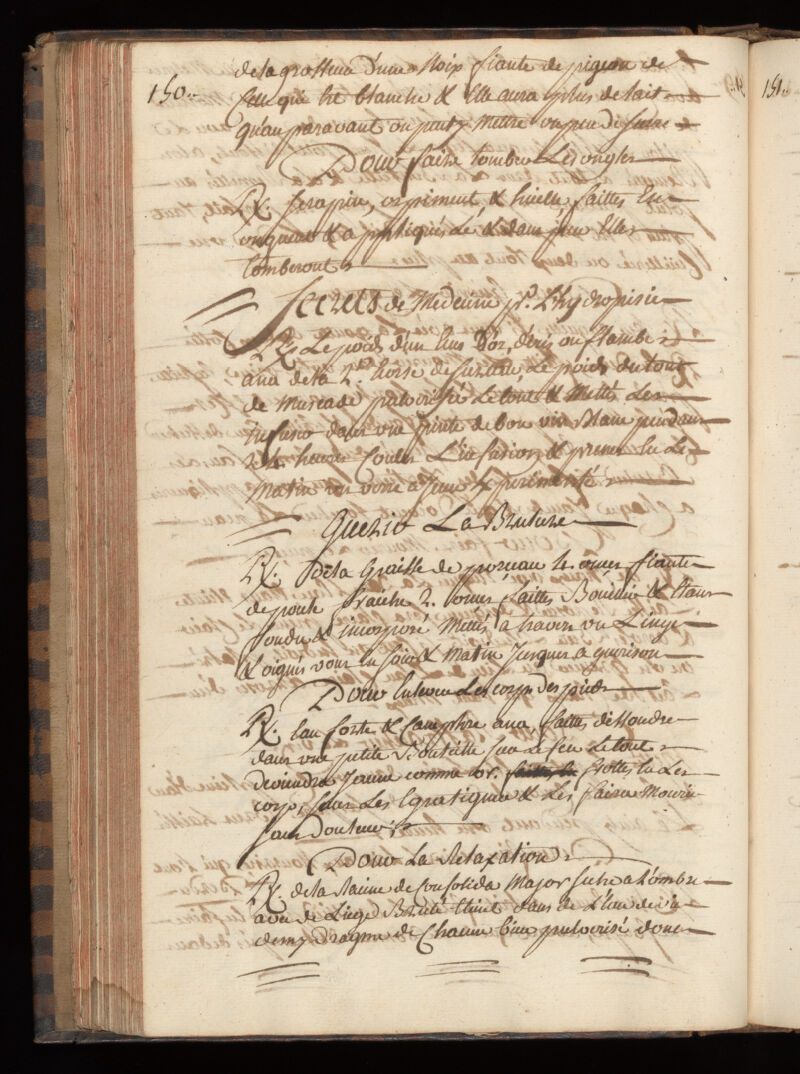 150..
de la grosseur d'une Noix fiante de pigeon de
celle qui est blanche & Elle aura plus de lait
qu'au paravant on peut y mettre un peu de sucre
Pour faire tomber Les ongles
℞. serapin, orpiment & huille, faittes En
onguent & appliqués Lé & dans peu Elles
tomberont
Secrets de Medecine pr. L'hydropisie
℞. Le poids d'un Ecus D'or, d'iris ou flambe
ana de la 2e. Ecorse de sureau Le poids du tout
de muscade pulverisé Letout & Mettés Les
Infuser dans une pinte de bon vin Blanc pendant
24. heures Coulés L'infusion & prenes En Le
Matin un verre a Jeun Experimenté
Guerir La Brulure
℞. De la Graisse de porceau 4. onces fiante
de poule fraiche 2. onces faittes Bouillir & Etant
fondu & incorporé Mettés a travers un Linge
& oignés vous En soir & Matin Jusques a guerison
Pour Enlever Les corps des pieds
℞. Eau forte & Camphre ana faittes dissoudre
dans une petite Bouteille sur Le feu Letout
deviendra Jaune comme or. frottes En Les
corps, sans Les Egratigner & Les faira Mourir
sans Douleur
Pour La Relaxation
℞. de la Racine de Consolida Major seche a L'ombre
avec de Linge Brulé Eteint dans de L'Eau de vie
demy Dragme de Chacun bien pulverisé donc
151..